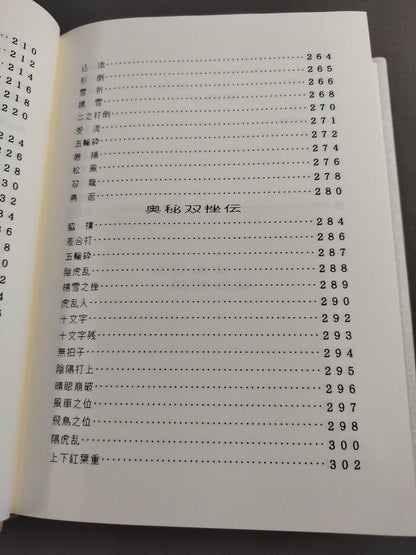 210
212
214
216
218
220
224
226
228
込 添 264
杉 倒 265
雪 折 266
揚 雪 268
二之打倒 270
受 流 271
五輪砕 272
捕 274
松 風 276
双 龍 278
燕 返 280
奥秘双挫伝
脇 構 284
差合打 286
五輪砕 287
陰虎乱 288
揚雪之挫 289
虎乱入 290
十文字 292
十文字残 293
無拍子 294
陰陽打上 295
晴眼崩破 296
風車之位 297
飛鳥之位 298
陽虎乱 300
上下紅葉重 302